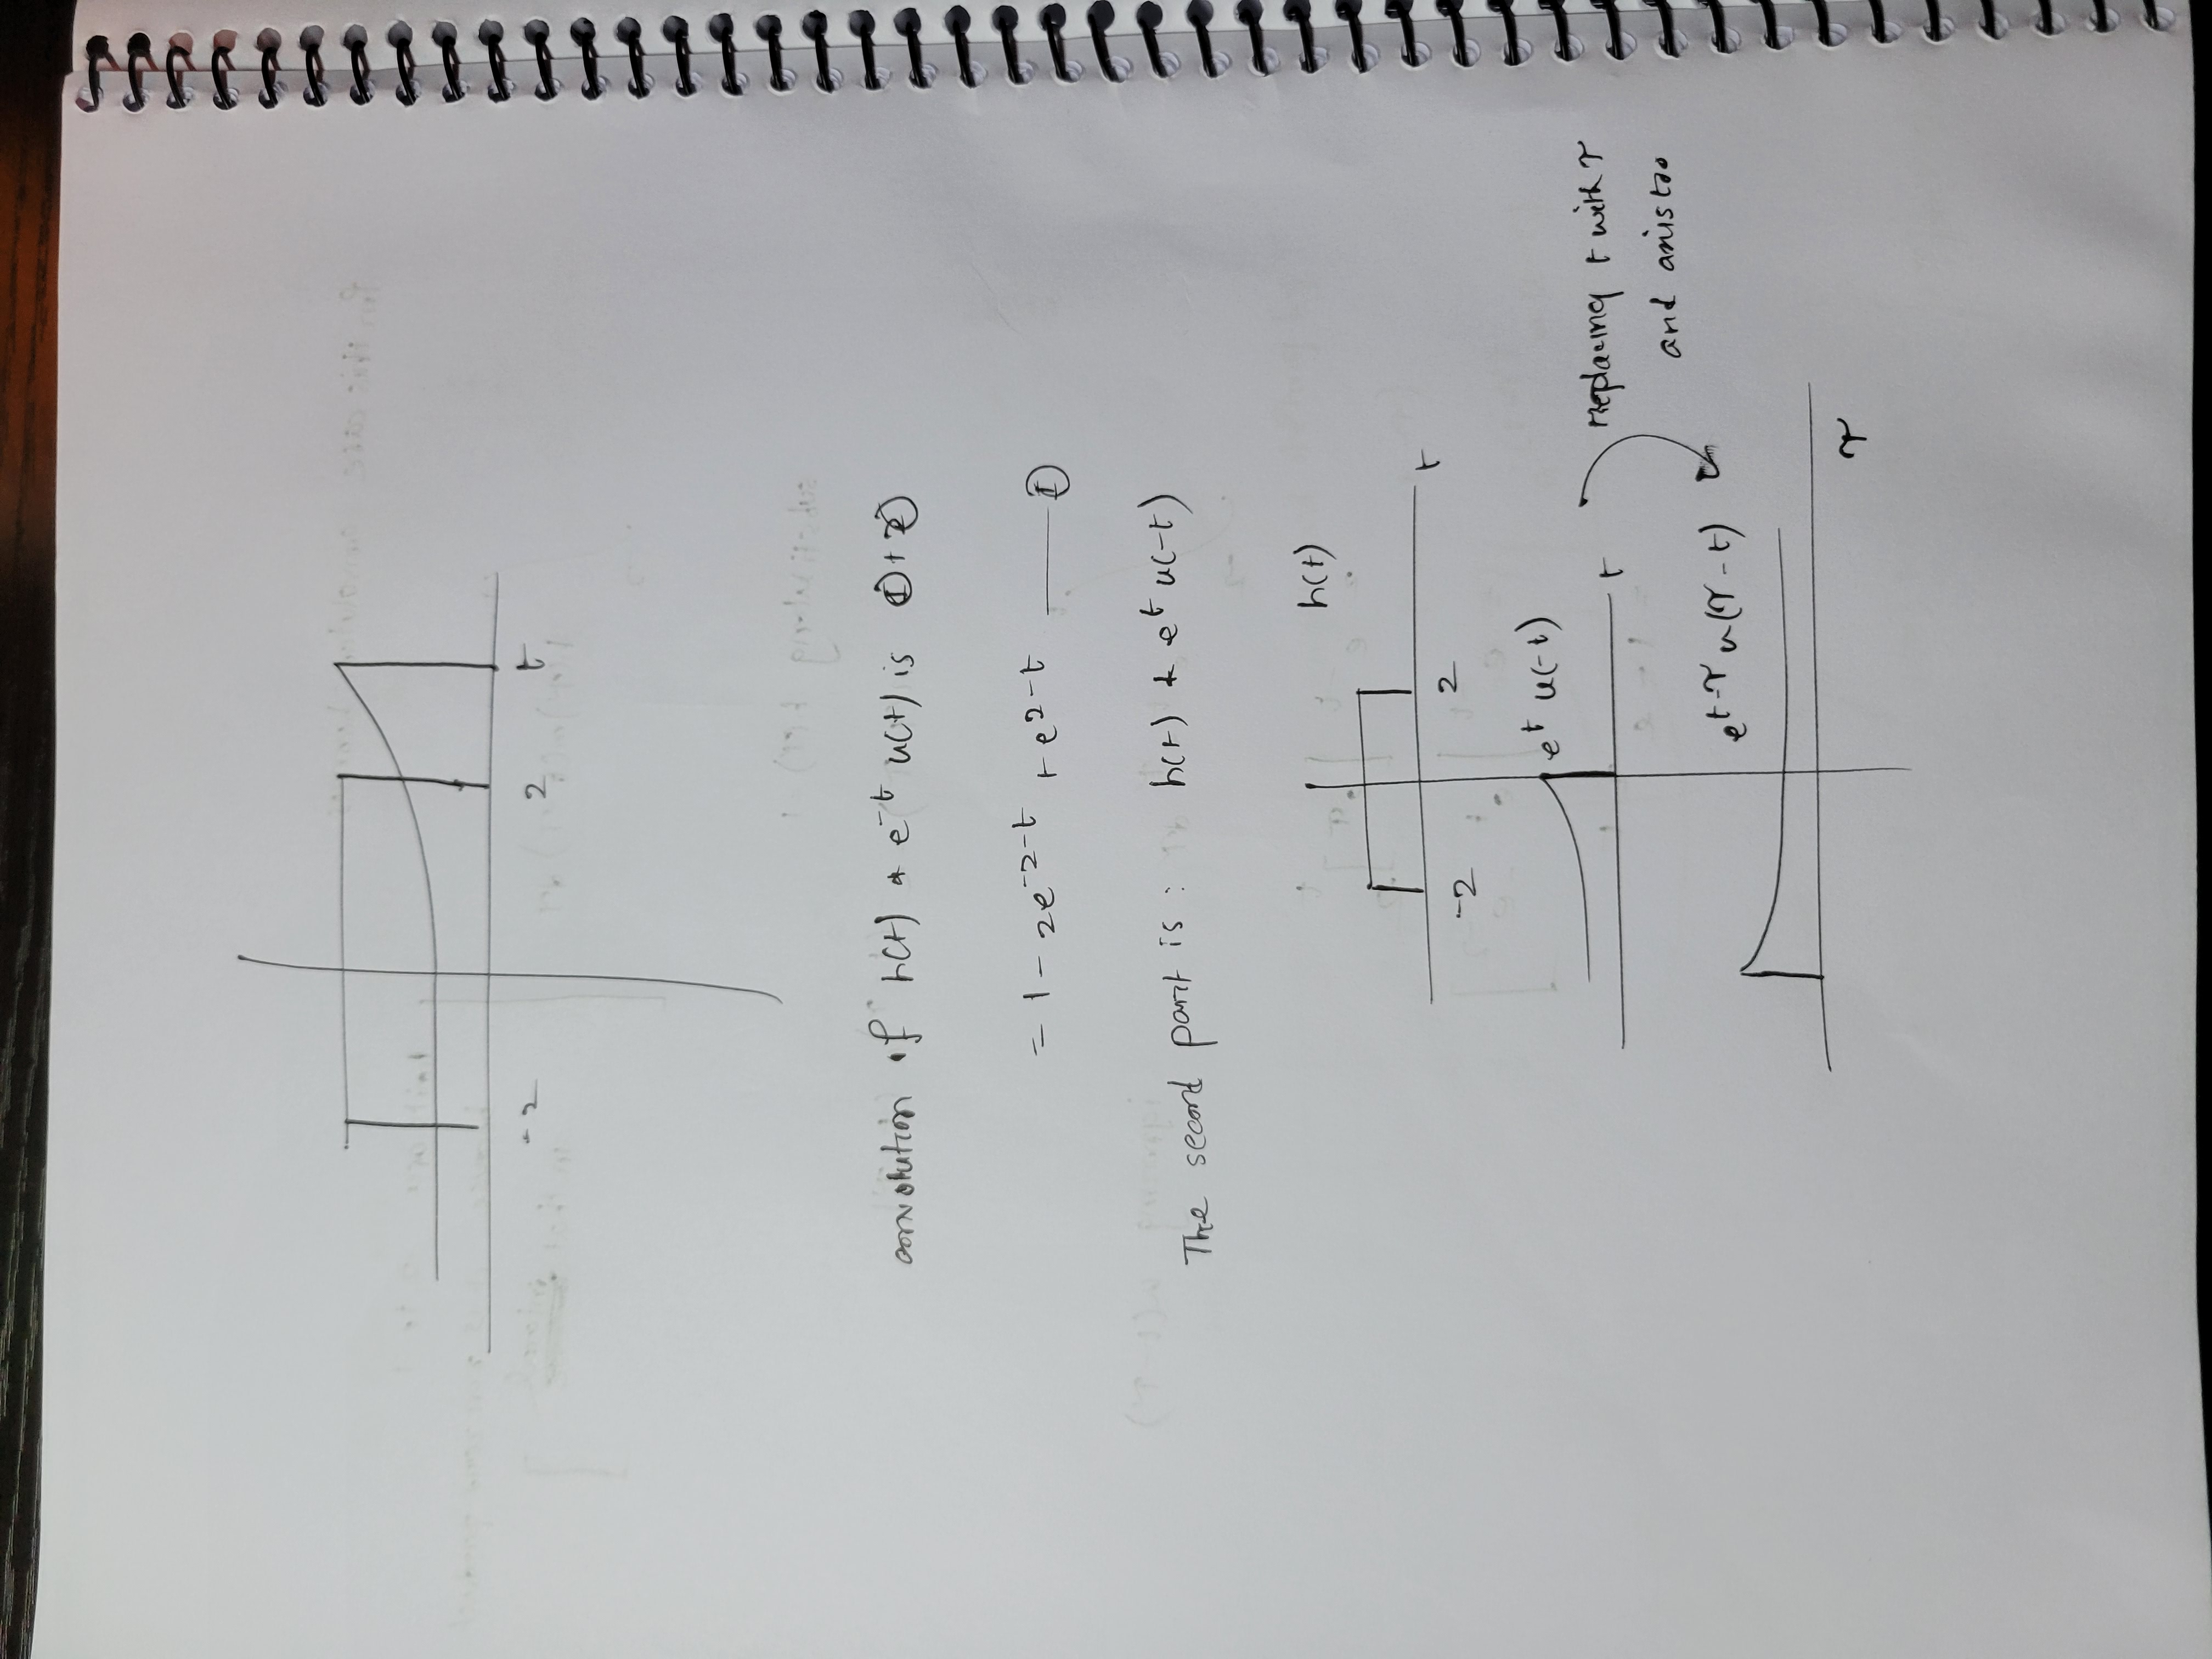 -2 2 t
convolution of h(t) * e^-t u(t) is ① + ②
= 1 - 2e^-2-t + e^2-t —— ①
The second part is : h(t) * e^t u(-t)
h(t)
t
-2 2
e^t u(-t)
t
replacing t with τ
and axis too
e^t-τ u(τ-t)
τ